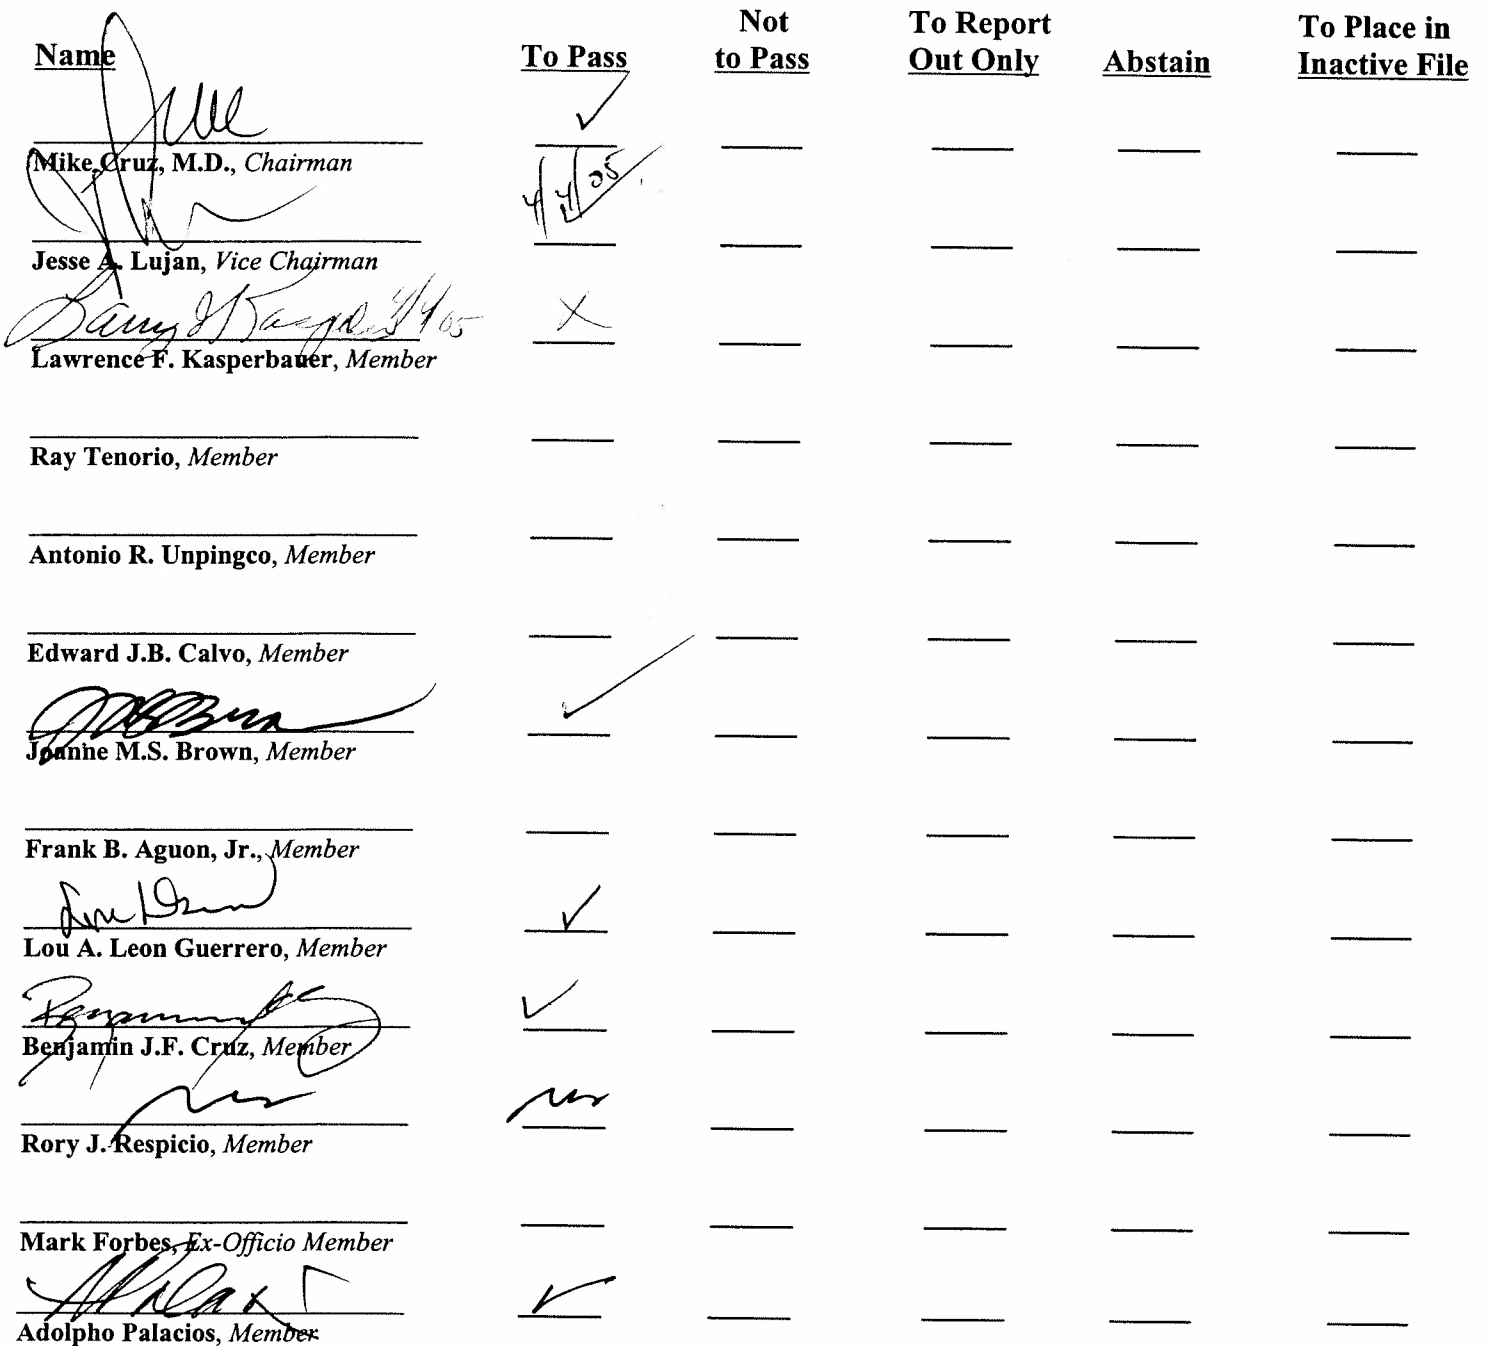 Name To Pass Not to Pass To Report Out Only Abstain To Place in Inactive File
✓
Mike Cruz, M.D., Chairman
4/4/05 ✓
Jesse A. Lujan, Vice Chairman
4/4/05 X
Lawrence F. Kasperbauer, Member
Ray Tenorio, Member
Antonio R. Unpingco, Member
Edward J.B. Calvo, Member
✓
Joanne M.S. Brown, Member
Frank B. Aguon, Jr., Member
✓
Lou A. Leon Guerrero, Member
✓
Benjamin J.F. Cruz, Member
Rory J. Respicio, Member
Mark Forbes, Ex-Officio Member
✓
Adolpho Palacios, Member